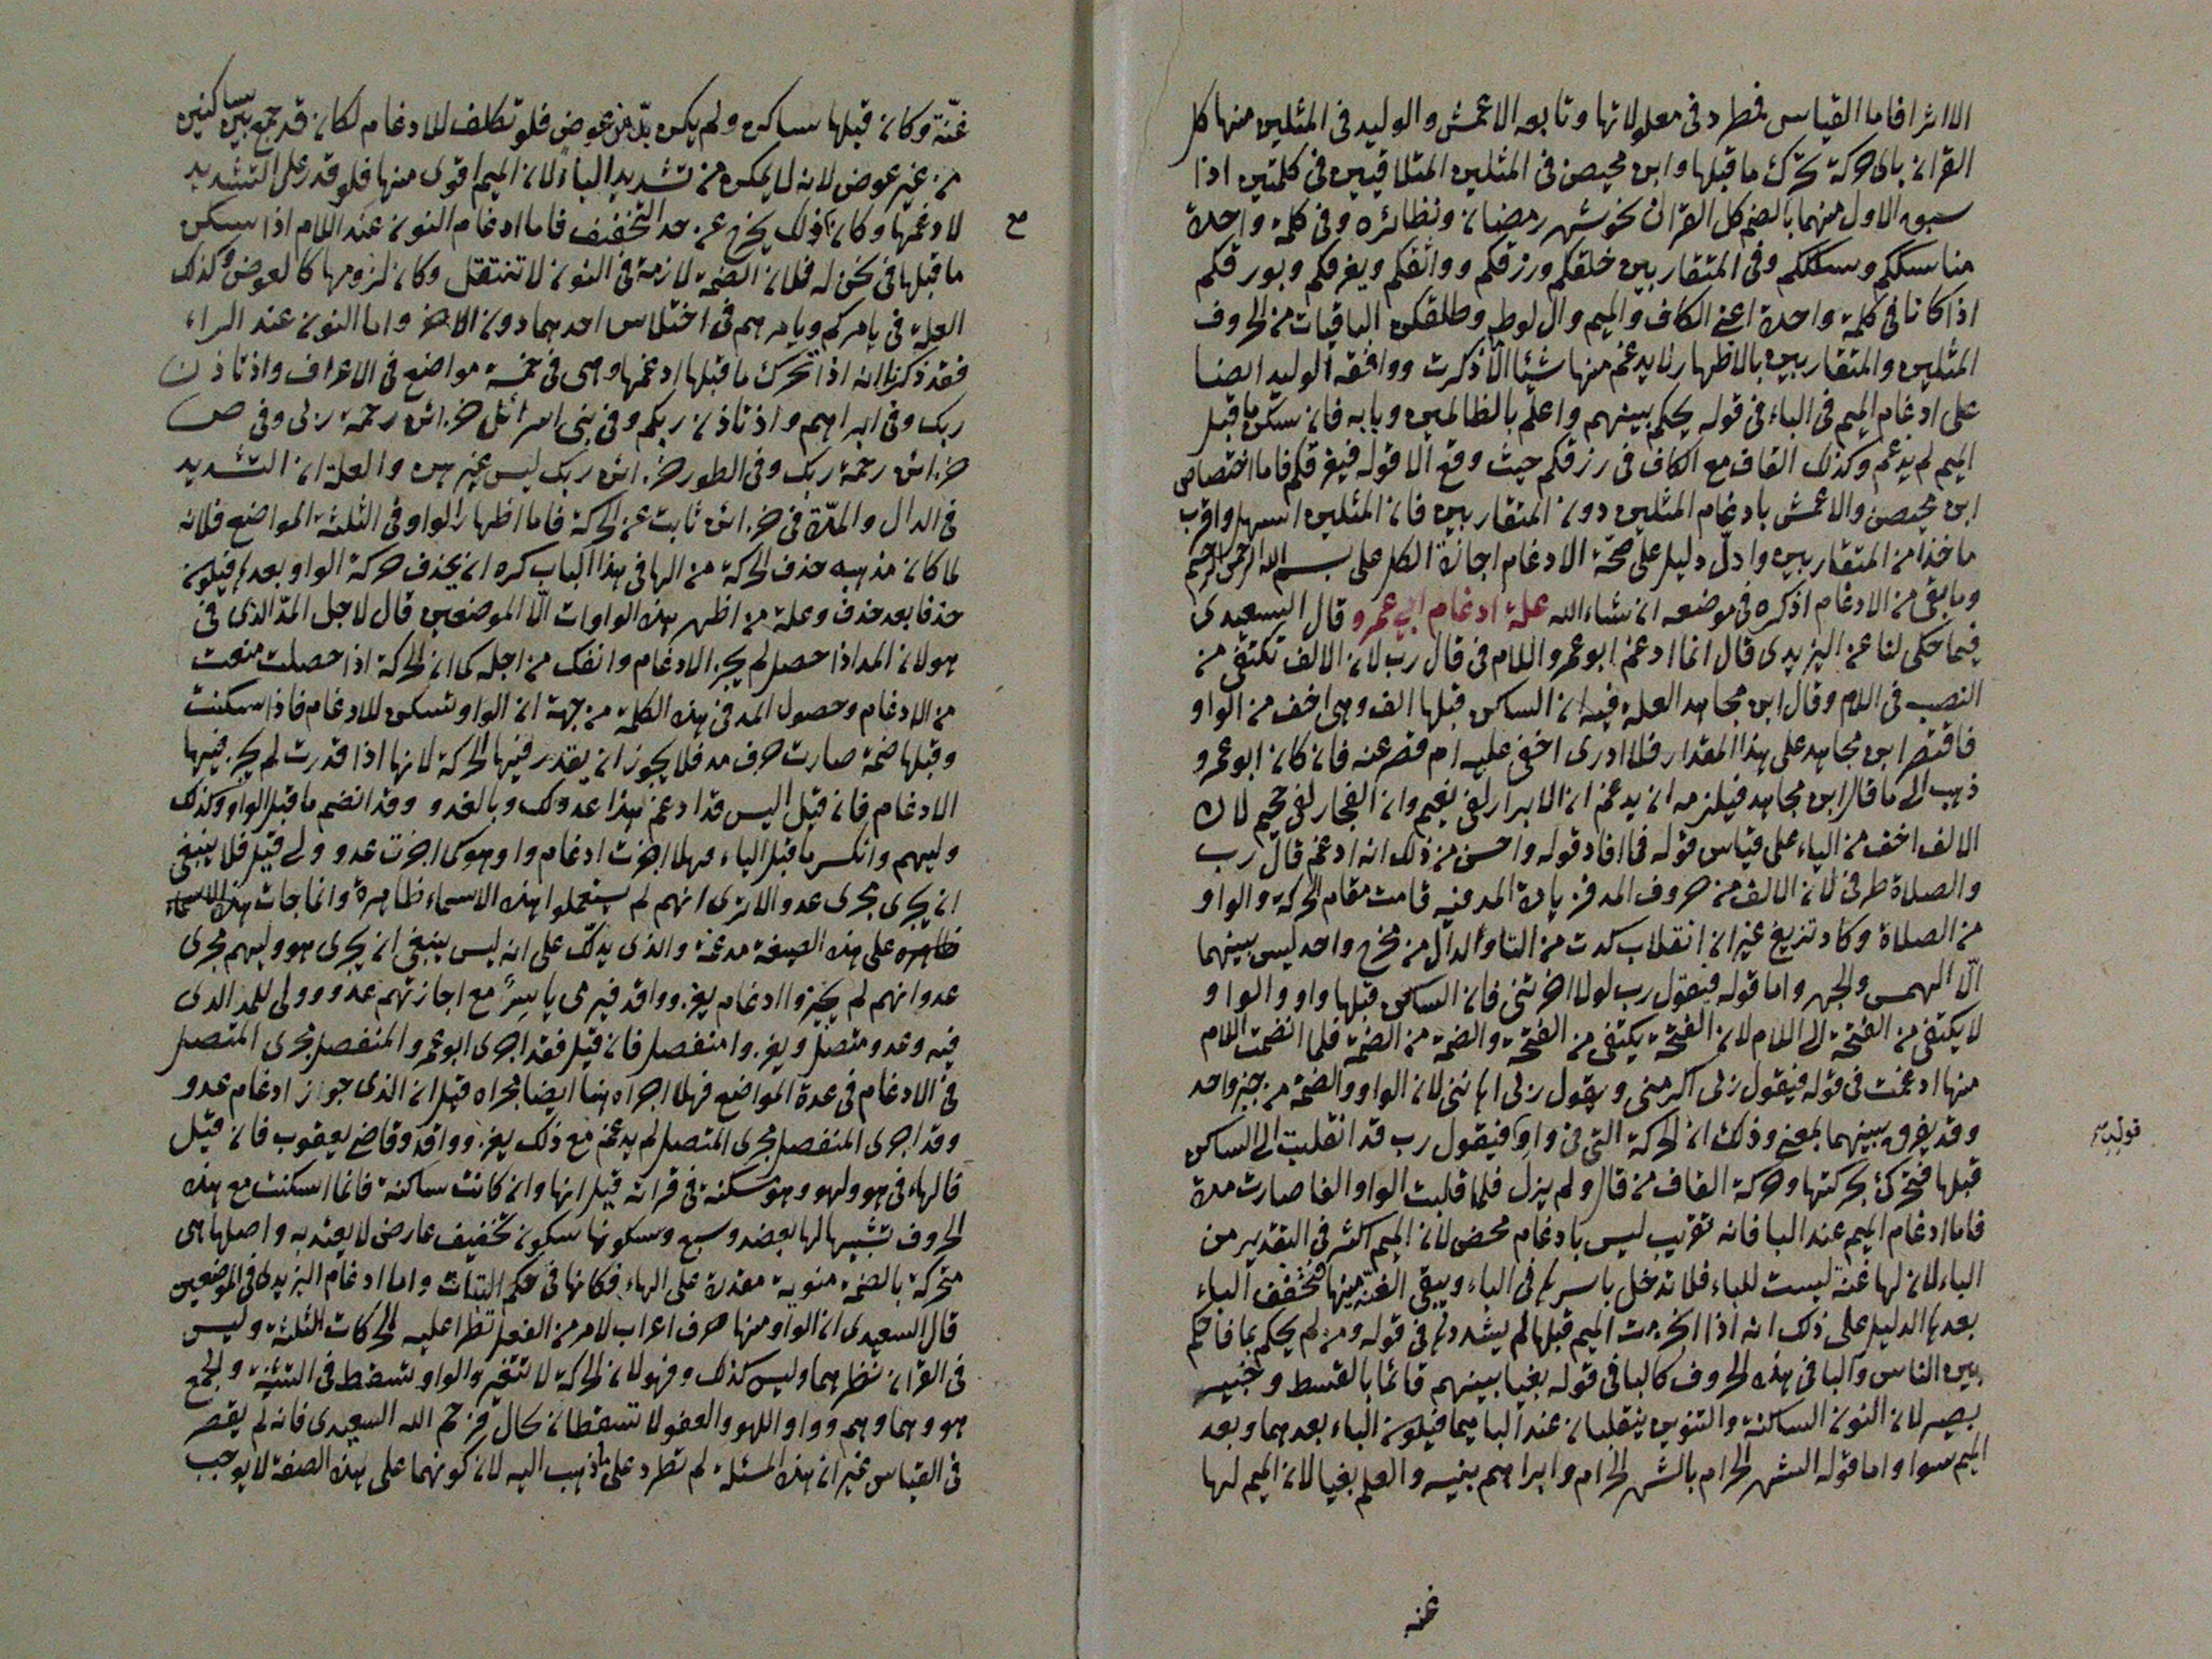 الا اثرا فاما القياس فمطرد فى معلولاتها وتابعه الاعمش والوليد فى المثلين منها كل
القران باى حركة تحرك ما قبلها وابن محيصن فى المثلين المتلاقيين فى كلمتين اذا
سبق الاول منهما بالضم كل القران نحو شهر رمضان ونظائره وفى كلمة واحدة
مناسككم وسلككم وفى المتقاربين خلقكم ورزقكم وواثقكم ويغرقكم وبورقكم
اذا كانا فى كلمة واحدة اعنى الكاف والميم وال لوط وطلقكن الباقيات من الحروف
المثلين والمتقاربين بالاظهار لا يدغم منها شيئا الا ما ذكرت ووافقه الوليد ايضا
على ادغام الميم فى الباء فى قوله يحكم بينهم واعلم بالظالمين وبابه فان سكن ما قبل
الميم لم يدغم وكذلك القاف مع الكاف فى رزقكم حيث وقع الا قوله فيغرقكم فاما اختصاص
ابن محيصن والاعمش بادغام المثلين دون المتقاربين فان المثلين اسهل واقرب
ماخذا من المتقاربين وادل دليل على صحة الادغام اجازة الكل على بسم الله الرحمن الرحيم
وما بقى من الادغام اذكره فى موضعه ان شاء الله علة ادغام ابى عمرو قال السعيدى
فيما حكى لنا عن اليزيدى قال انما ادغم ابو عمرو اللام فى قال رب لان الالف تكتفى من
النصب فى اللام وقال ابن مجاهد العلة فيه ان الساكن قبلها الف وهى اخف من الواو
فاقتصر ابن مجاهد على هذا المقدار فلا ادرى اخفى عليه ام قصر عنه فان كان ابو عمرو
ذهب الى ما قال ابن مجاهد فيلزمه ان يدغم ان الابرار لفى نعيم وان الفجار لفى جحيم لان
الالف اخف من الياء على قياس قوله فما افاد قوله واحسن من ذلك انه ادغم قال رب
والصلاة طرفى لان الالف من حروف المد فزيادة المد فيه قامت مقام الحركة والواو
من الصلاة وكاد تزيغ غير ان انقلاب كدت من التا والدال من مخرج واحد ليس بينهما
الا الهمس والجهر واما قوله فيقول رب لولا اخرتنى فان الساكن قبلها واو والواو
لا يكتفى من الفتحة الى اللام لان الفتحة يكتفى من الفتحة والضمة من الضمة فلما انضمت اللام
منها ادغمت فى قوله فيقول ربى اكرمنى ويقول ربى اهاننى لان الواو والضمة من حيز واحد
وقد يفرق بينهما بمعنى وذلك ان الحركة التى فى واو فيقول رب قد انقلبت الى الساكن
قبلها فتحرك بحركتها وحركة القاف من قال ولم يزل فلما قلبت الواو الفا صارت مدة
فاما ادغام الميم عند البا فانه تقريب ليس بادغام محض لان الميم اكثر فى التقدير من
الباء لان لها غنة ليست للباء فلا تدخل باسرها فى الباء ويبقى الغنة منها فتخفف الباء
بعدها الدليل على ذلك انه اذا انجزمت الميم قبلها لم يشددها فى قوله ومن لم يحكم بما فاحكم
بين الناس والبا فى هذه الحروف كالبا فى قوله بغيا بينهم قائما بالقسط وخبير
بصير لان النون الساكنة والتنوين ينقلبان عند البا ميما فيكون الباء بعدهما وبعد
الميم سوا واما قوله الشهر الحرام بالشهر الحرام وابراهم بنيه والعلم بغيا لان الميم لها
غنه
غنة وكان قبلها ساكن ولم يكن بد من عوض فلو تكلف للادغام لكان قد جمع بين ساكنين
من غير عوض لانه لا يمكن من تشديد الباء لان الميم اقوى منها فلو قدر على التشديد
لادغمها وكان ذلك يخرج عن حد التخفيف فاما ادغام النون عند اللام اذا سكن
ما قبلها فى نحن له فلان الضمة لازمة فى النون لا تنتقل وكان لزومها كالعوض وكذلك
العلة فى يامركم ويامرهم فى اختلاس احدهما دون الاخر واما النون عند الراء
فقد ذكرنا انه اذا تحرك ما قبلها ادغمها وهى فى خمسة مواضع فى الاعراف واذ تاذن
ربك وفى ابراهيم واذ تاذن ربكم وفى بنى اسرائل خزائن رحمة ربى وفى ص
خزائن رحمة ربك وفى الطور خزائن ربك ليس غيرهن والعلة ان التشديد
فى الدال والمدة فى خزائن نابت عن الحركة فاما اظهار الواو فى الثلثة المواضع فلانه
لما كان مذهبه حذف الحركة من الها فى هذا الباب كره ان يحذف حركة الواو بعدها فيكون
حذفا بعد حذف وعلة من اظهر هذه الواوات الا الموضعين قال لاجل المد الذى فى
هو لان المد اذا حصل لم يجز الادغام وانفك من اجله كما ان الحركة اذا حصلت منعت
من الادغام وحصول المد فى هذه الكلمة من جهة ان الواو تسكن للادغام فاذا سكنت
وقبلها ضمة صارت حرف مد فلا يجوز ان يقدر فيها الحركة لانها اذا قدرت لم يجز فيها
الادغام فان قيل اليس قد ادغم هذا عدوك وبالغدو وقد انضم ما قبل الواو وكذلك
وليهم وانكسر ما قبل الياء فهلا اجزت ادغام واو هو كما اجزت عدو ولى قيل فلا ينبغى
ان يجرى مجرى عدو الا ترى انهم لم يستعملوا هذه الاسماء ظاهرة وانما جات هذه الاسماء
ظاهره على هذه الصيغة مدغمة والذى يدلك على انه ليس ينبغى ان يجرى هو وليهم مجرى
عدو انهم لم يجيزوا ادغام يغزو واقد فيرمى ياسر مع اجازتهم عدو وولى للمد الذى
فيه وعدو متصل ويغزو امنفصل فان قيل فقد اجرى ابو عمرو المنفصل مجرى المتصل
فى الادغام فى عدة المواضع فهلا اجراه هنا ايضا مجراه قيل ان الذى جواز ادغام عدو
وقد اجرى المنفصل مجرى المتصل لم يدغم مع ذلك يغزو واقد وقاضى يعقوب فان قيل
فالهاء فى هو ولهو وهو مسكنة فى قرائة قيل انها وان كانت ساكنة فانما اسكنت مع هذه
الحروف تشبيها لها بعضد وسبع وسكونها سكون تخفيف عارض لا يعتد به واصلها هى
متحركة بالضمة منوية مقدرة على الهاء فكانها فى حكم الثبات واما ادغام اليزيدى فى الموضعين
قال السعيدى ان الواو منها حرف اعراب لامر من الفعل تطرا عليه الحركات الثلثة وليس
فى القران نظيرهما وليس كذلك وهو لان الحركة لا تتغير والواو تسقط فى التثنية والجمع
هو وهما وهم وواو اللهو والعفو لا تسقطان بحال فرحم الله السعيدى فانه لم يقصر
فى القياس غير ان هذه المسئلة لم تطرد على ما ذهب اليه لان كونهما على هذه الصفة لا يوجب